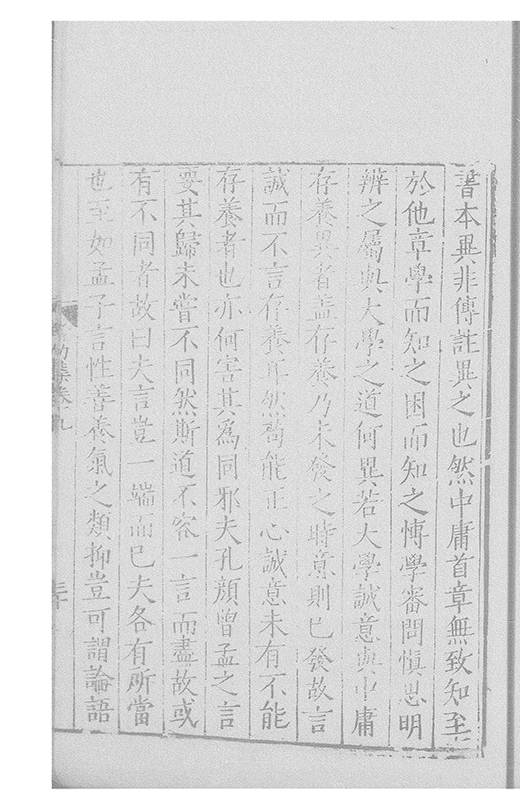 書本異非傳註異之也然中庸首章無致知至
於他章學而知之困而知之愽學審問慎思明
辨之屬與大學之道何異若大學誠意與中庸
存養異者盖存養乃未發之時意則已發故言
誠而不言存養耳然苟能正心誠意未有不能
存養者也亦何害其為同邪夫孔顏曾孟之言
要其歸未嘗不同然斯道不容一言而盡故或
有不同者故曰夫言豈一端而已夫各有所當
也至如孟子言性善養氣之類抑豈可謂論語
集卷九